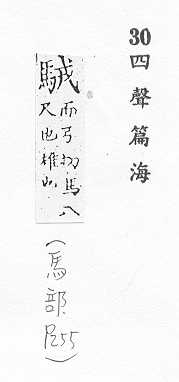 30
四聲篇海
駥
而弓切馬八
尺也雄也
(馬部P255)